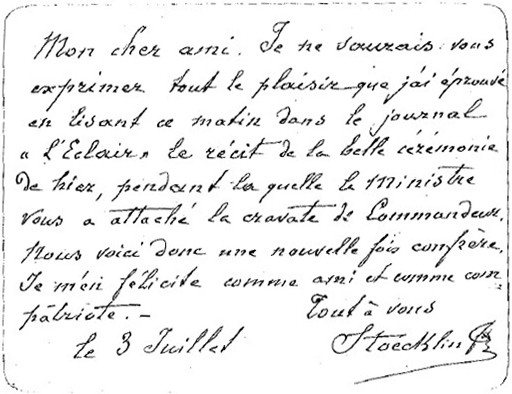 Mon cher ami. Je ne saurais vous
exprimer tout le plaisir que j'ai éprouvé
en lisant ce matin dans le journal
« L'Eclair » le récit de la belle cérémonie
de hier, pendant la quelle le Ministre
vous a attaché la cravate de Commandeur.
Nous voici donc une nouvelle fois confrère.
Je m'en félicite comme ami et comme com-
patriote. —
Tout à vous
le 3 Juillet Stoecklin